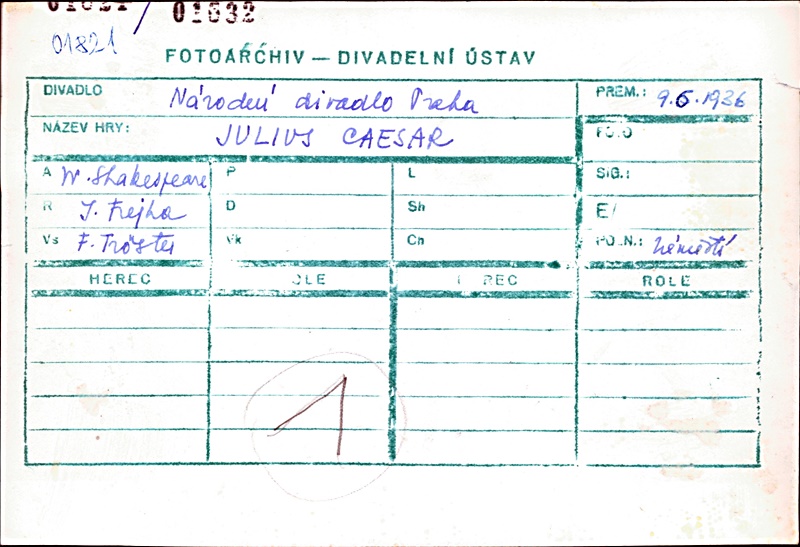 01821 / 01632
01821
FOTOARCHIV — DIVADELNÍ ÚSTAV
DIVADLO Národní divadlo Praha PREM.: 9.6.1936
NÁZEV HRY: JULIUS CAESAR FOTO
A W. Shakespeare P L SIG.:
R J. Frejka D Sh E/
Vs F. Tröster Vk Ch POZN.: náměstí
HEREC ROLE HEREC ROLE
1